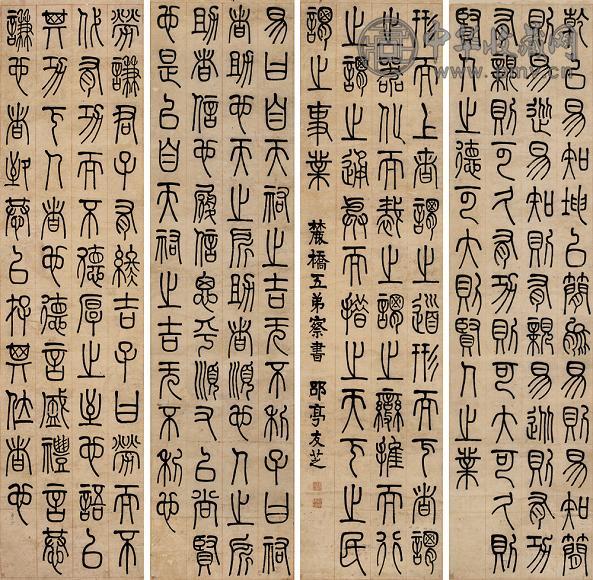 乾以易知坤以簡能易則易知簡
則易從易知則有親易從則有功
有親則可久有功則可大可久則
賢人之德可大則賢人之業
形而上者謂之道形而下者謂
之器化而裁之謂之變推而行
之謂之通舉而措之天下之民
謂之事業
麓橋五弟察書 郘亭友芝
易曰自天祐之吉无不利子曰祐
者助也天之所助者順也人之所
助者信也履信思乎順又以尚賢
也是以自天祐之吉无不利也
勞謙君子有終吉子曰勞而不
伐有功而不德厚之至也語以
其功下人者也德言盛禮言恭
謙也者致恭以存其位者也
中华收藏网